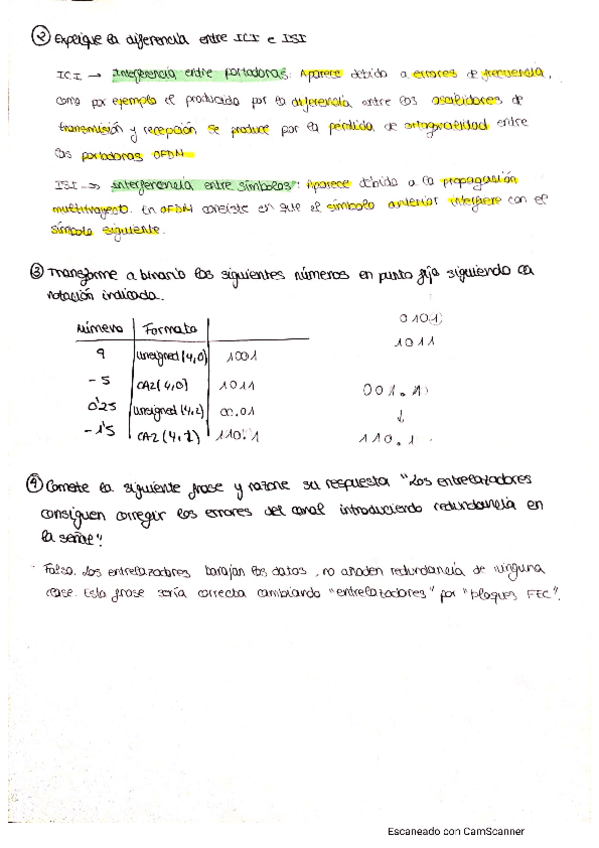 ② Explique la diferencia entre ICI e ISI
ICI → Interferencia entre portadoras: Aparece debido a errores de frecuencia,
como por ejemplo el producido por la diferencia entre los osciladores de
transmisión y recepción se produce por la pérdida de ortogonalidad entre
las portadoras OFDM
ISI → interferencia entre símbolos: Aparece debido a la propagación
multitrayecto. En OFDM consiste en que el símbolo anterior interfiere con el
símbolo siguiente.
③ Transforme a binario los siguientes números en punto fijo siguiendo la
notación indicada.
número Formato
9 unsigned (4,0) 1001
-5 CA2 (4,0) 1011
0'25 unsigned (4,2) 00.01
-1'5 CA2 (4,1) 110.1
0101
1011
001.1
↓
110.1
④ Comente la siguiente frase y razone su respuesta "Los entrelazadores
consiguen corregir los errores del canal introduciendo redundancia en
la señal".
Falso. Los entrelazadores barajan los datos, no añaden redundancia de ninguna
clase. Esta frase sería correcta cambiando "entrelazadores" por "bloques FEC".
Escaneado con CamScanner